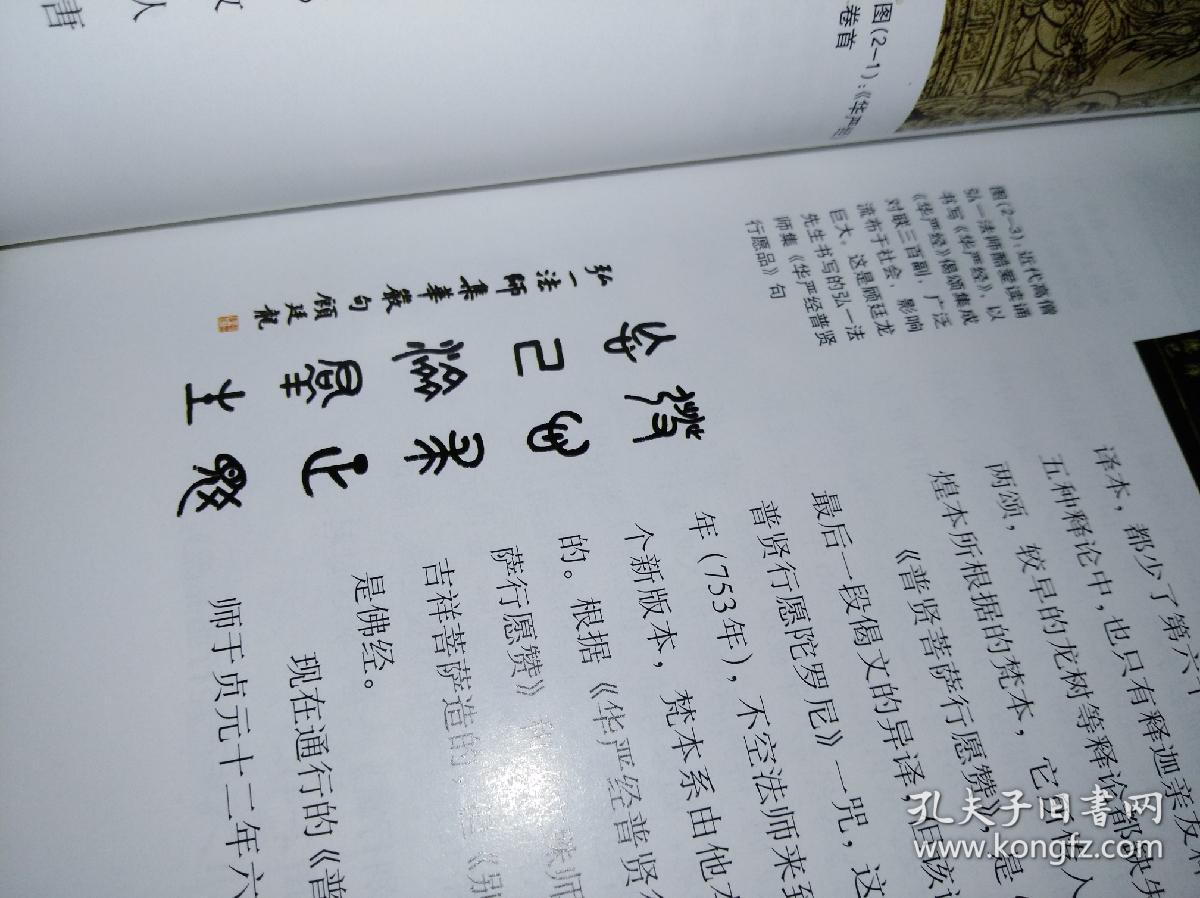 图(2—1):《华严
卷首
人
書
图(2—3):近代高僧
弘一法师酷爱读诵
书写《华严经》,以
《华严经》偈颂集成
对联三百副,广泛
流布于社会,影响
巨大。这是顾廷龙
先生书写的弘一法
师集《华严经普贤
行愿品》句
弘一法師集華嚴句 顧廷龍
译本,都少了第六十
五种释论中,也只有释迦亲友
两颂,较早的龙树等释论都缺失
煌本所根据的梵本,它
《普贤菩萨行愿赞》,是《
最后一段偈文的异译,但该
普贤行愿陀罗尼》一咒,这
年(753年),不空法师来到
个新版本,梵本系由他
的。根据《华严经普贤
萨行愿赞》 殊师
吉祥菩萨造的 《别
是佛经。
现在通行的《普
师于贞元十二年六
孔夫子旧书网
www.kongfz.com